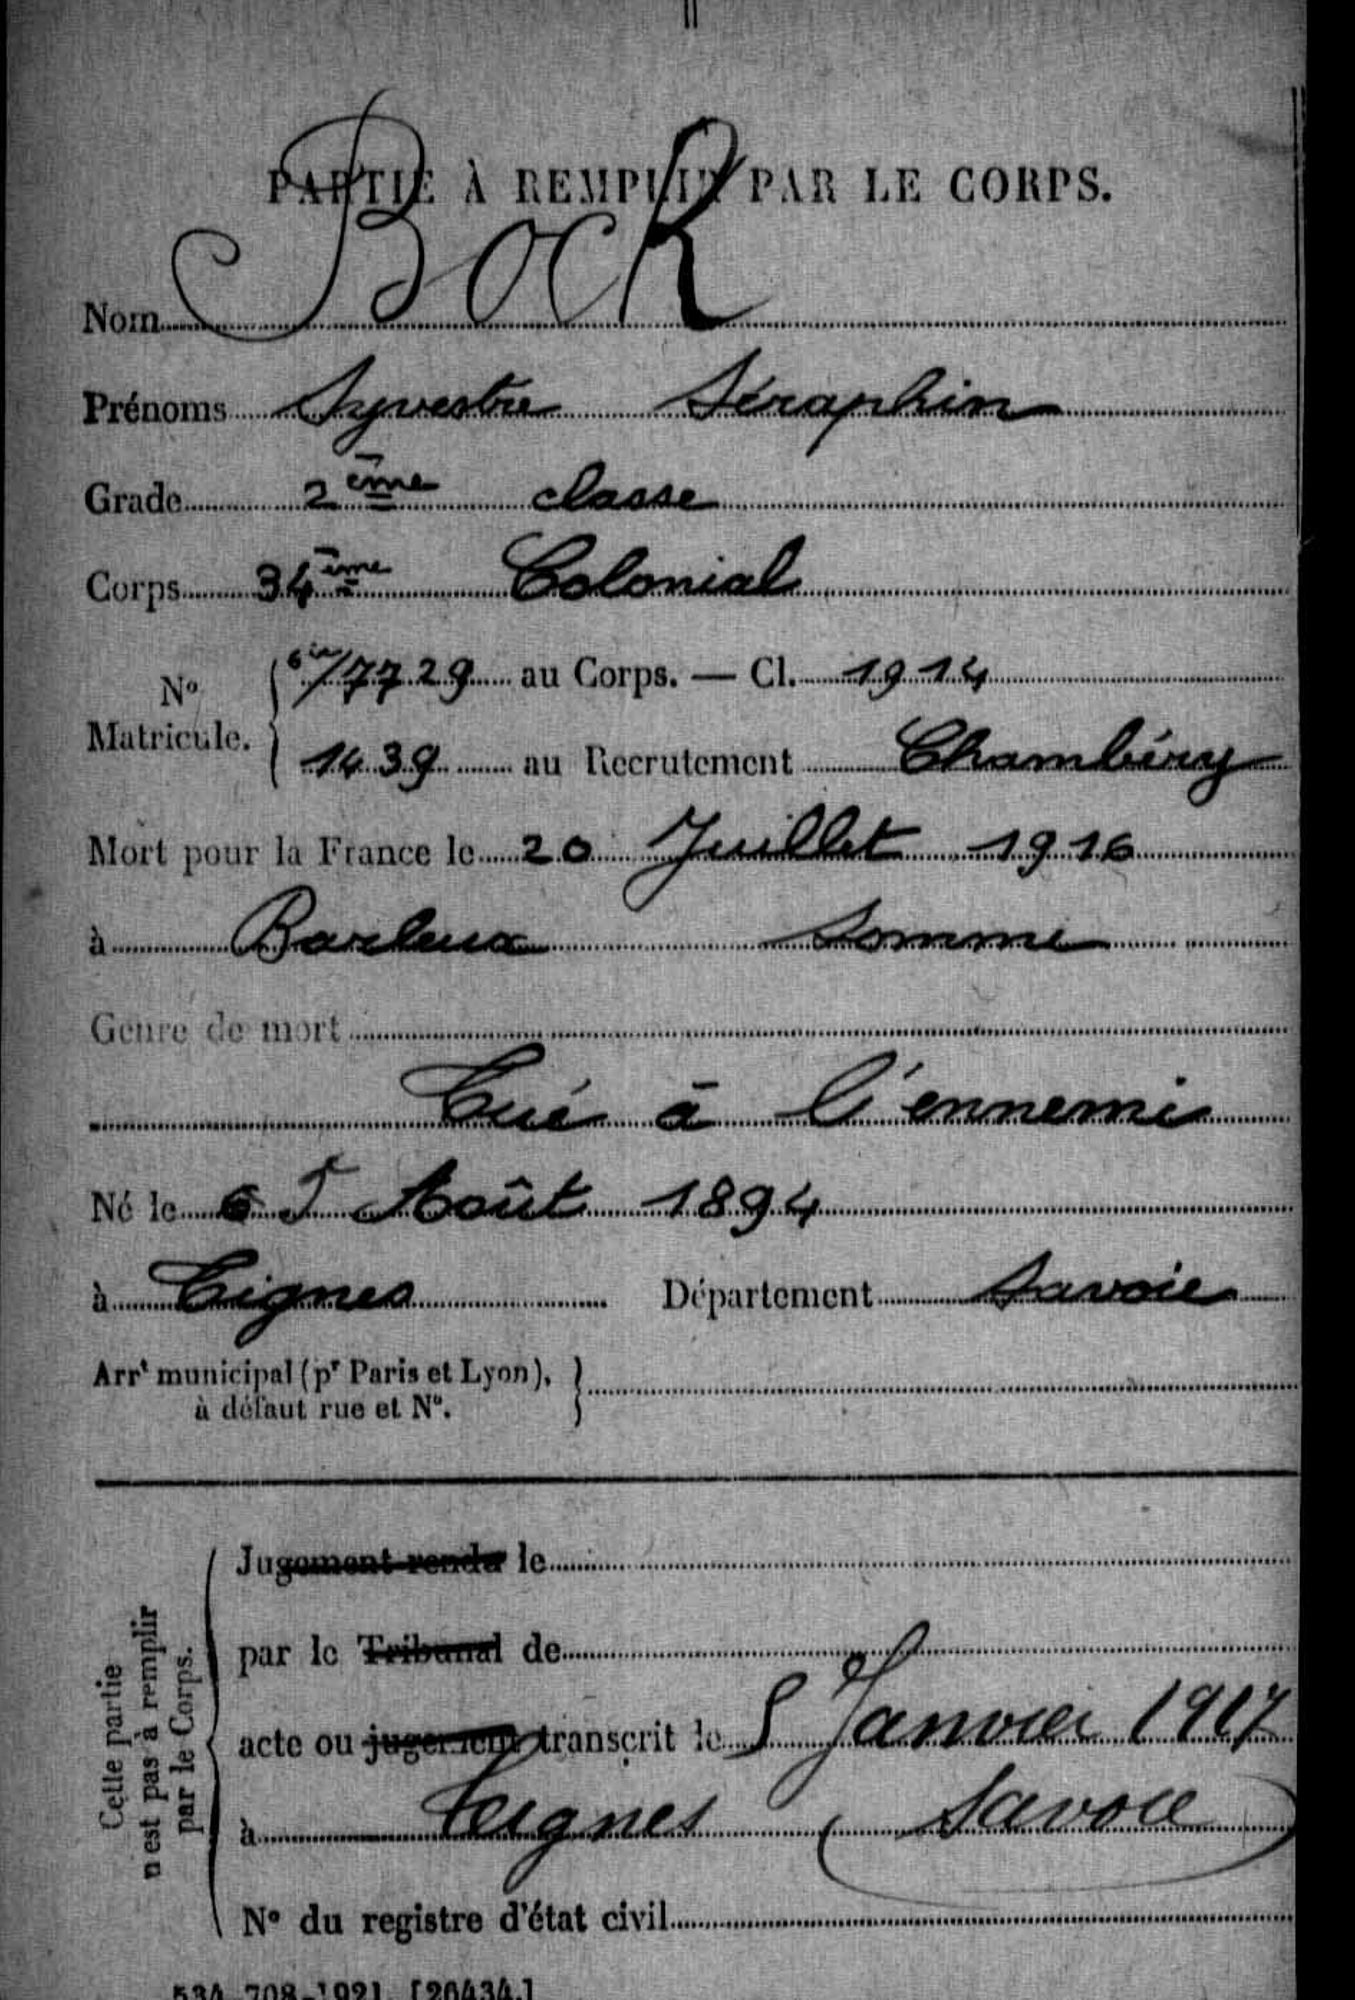 PARTIE À REMPLIR PAR LE CORPS.
Nom Bock
Prénoms Sylvestre Séraphin
Grade 2ème classe
Corps 34ème Colonial
No Matricule.
7729 au Corps. — Cl. 1914
1439 au Recrutement Chambéry
Mort pour la France le 20 Juillet 1916
à Barleux Somme
Genre de mort
Tué à l'ennemi
Né le Août 1894
à Tignes Département Savoie
Arrt municipal (pr Paris et Lyon),
à défaut rue et No.
Cette partie
n'est pas à remplir
par le Corps.
Jugement rendu le
par le Tribunal de
acte ou jugement transcrit le 5 Janvier 1917
à Tignes (Savoie)
No du registre d'état civil
534-708-1921. [26434.]